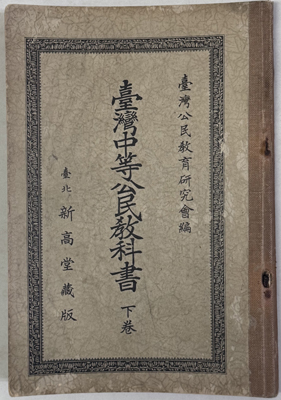 臺灣公民教育研究會編
臺灣中等公民教科書 下卷
臺北 新高堂藏版